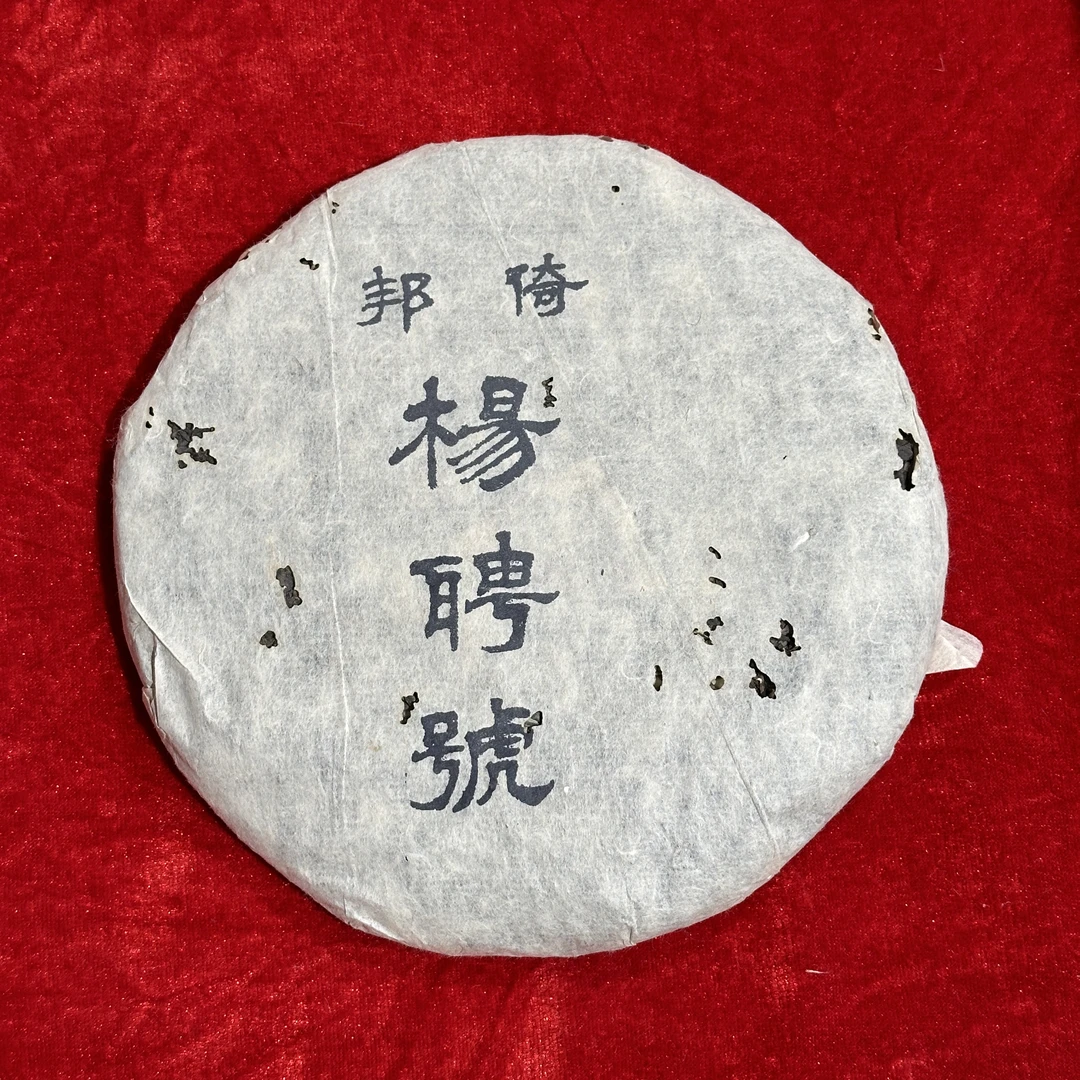 倚邦
楊
聘
號